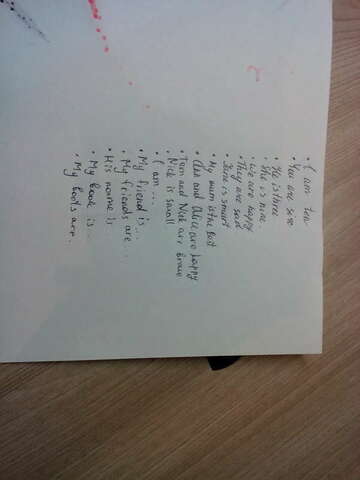 • I am ten
• You are
• He is three
• She is nine
• We are happy
• They are sad
• Jane is smart
• My mum is the best
• and Alice are happy
• Tom and Nick are brave
• Nick is small
• I am ...
• My friend is ..
• My friends are ...
• His name is
• My book is ..
• My books are.